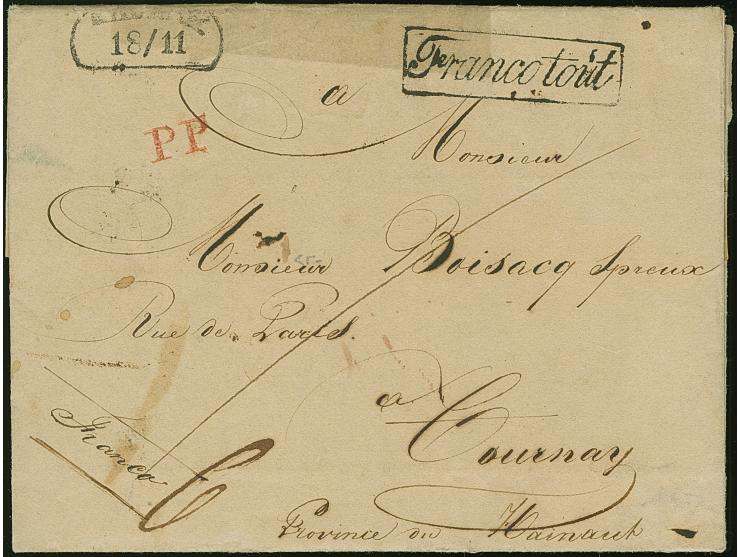 18/11
Franco tout
PP
a
Monsieur
Monsieur Boisacq Spreux
Rue de Paris.
a
Tournay
Franco
Province du Hainaut